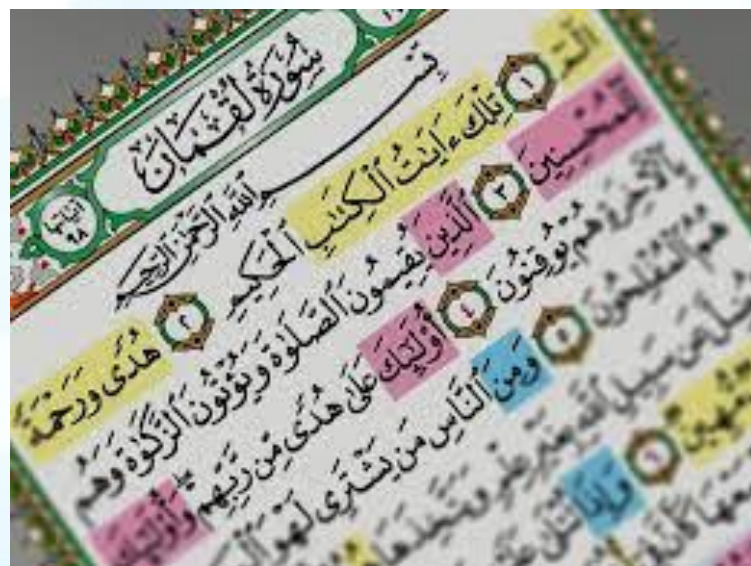 سُورَةُ لُقْمَانَ
بِسْمِ ٱللَّهِ ٱلرَّحْمَٰنِ ٱلرَّحِيمِ
الٓمٓ ١ تِلْكَ ءَايَٰتُ ٱلْكِتَٰبِ ٱلْحَكِيمِ ٢ هُدًى وَرَحْمَةً
لِّلْمُحْسِنِينَ ٣ ٱلَّذِينَ يُقِيمُونَ ٱلصَّلَوٰةَ وَيُؤْتُونَ ٱلزَّكَوٰةَ وَهُم
بِٱلْأٓخِرَةِ هُمْ يُوقِنُونَ ٤ أُو۟لَٰٓئِكَ عَلَىٰ هُدًى مِّن رَّبِّهِمْ ۖ وَأُو۟لَٰٓئِكَ
هُمُ ٱلْمُفْلِحُونَ ٥ وَمِنَ ٱلنَّاسِ مَن يَشْتَرِى لَهْوَ
عَن سَبِيلِ ٱللَّهِ بِغَيْرِ عِلْمٍ وَيَتَّخِذَهَا
٦ وَإِذَا تُتْلَىٰ